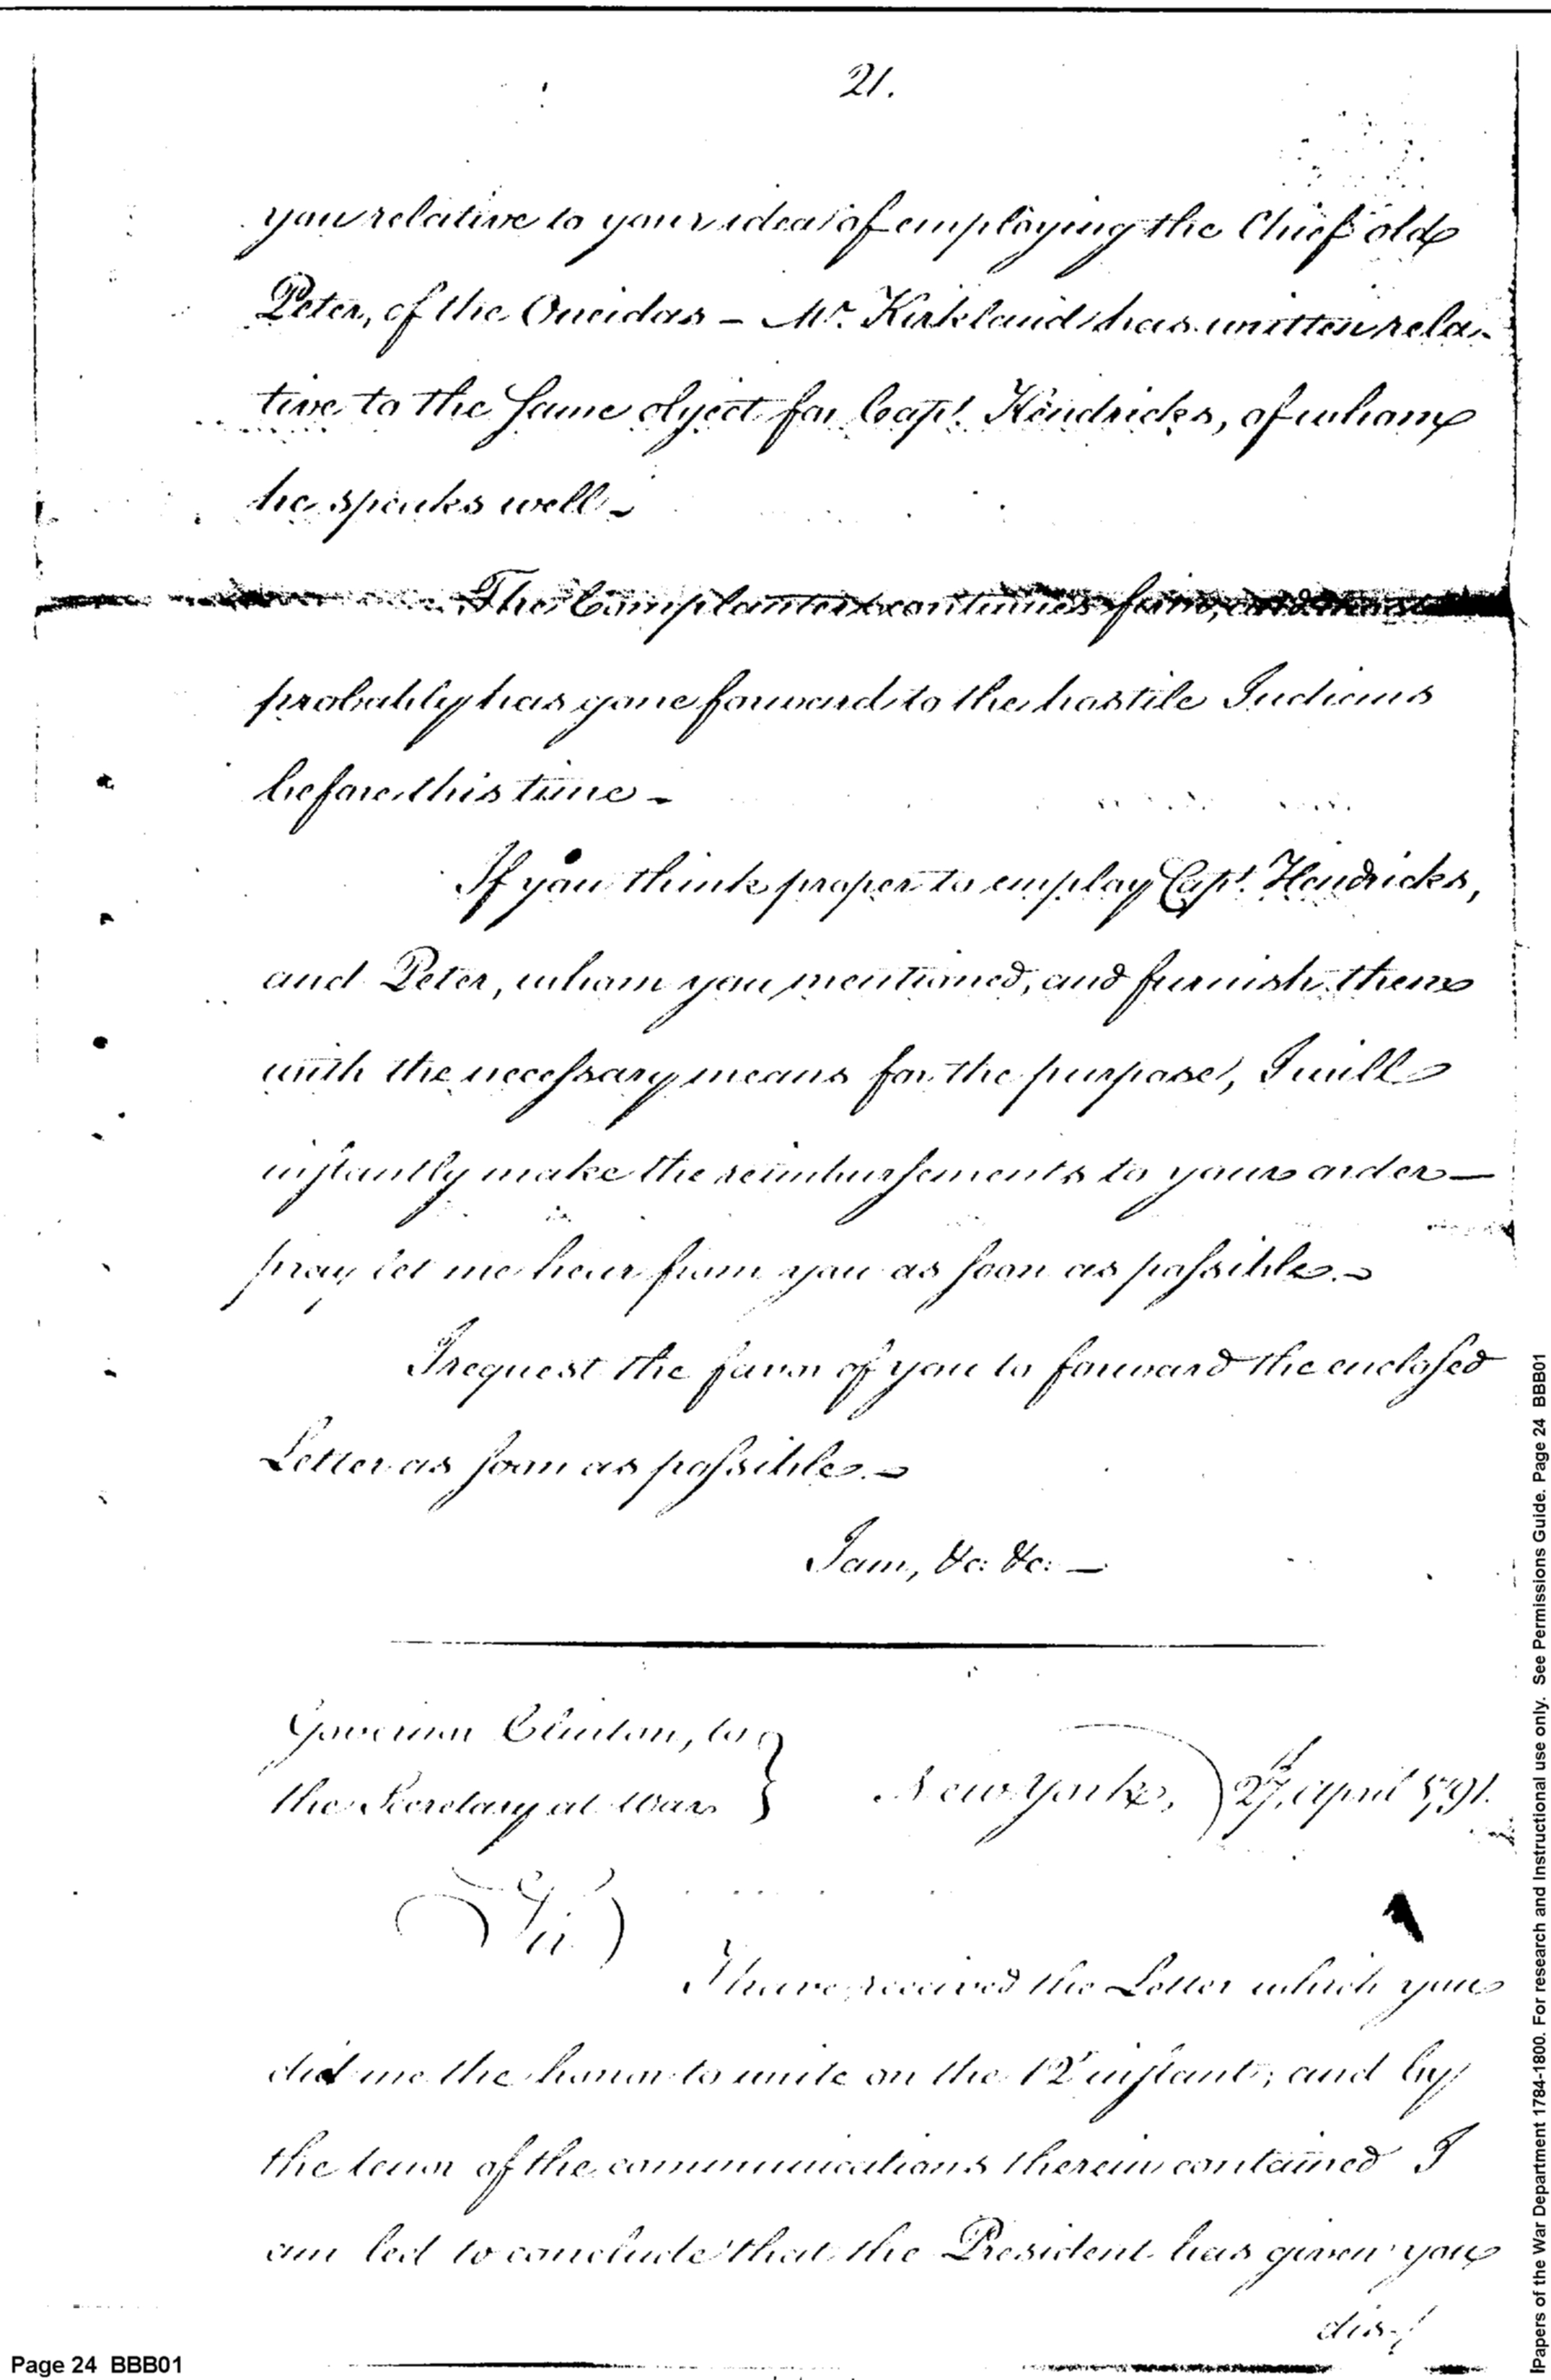 21.
you relative to your idea of employing the Chief old
Peter, of the Oneidas - Mr. Kirkland has written rela-
tive to the same object for Capt. Hendricks, of whom
he speaks well -
The Cornplanter continues firm, and most
probably has gone forward to the hostile Indians
before this time -
If you think proper to employ Capt. Hendricks,
and Peter, whom you mentioned, and furnish them
with the necessary means for the purpose, I will
instantly make the reimbursements to your order —
pray let me hear from you as soon as possible. -
I request the favor of you to forward the enclosed
Letter as soon as possible. -
I am, &c: &c: —
Governor Clinton, to
the Secretary at War }
New York, 27th April 1791.
Sir
I have received the Letter which you
did me the honor to write on the 12 instant; and by
the tenor of the communications therein contained I
am led to conclude that the President has given you
dis-
Page 24 BBB01
Papers of the War Department 1784-1800. For research and Instructional use only. See Permissions Guide. Page 24 BBB01